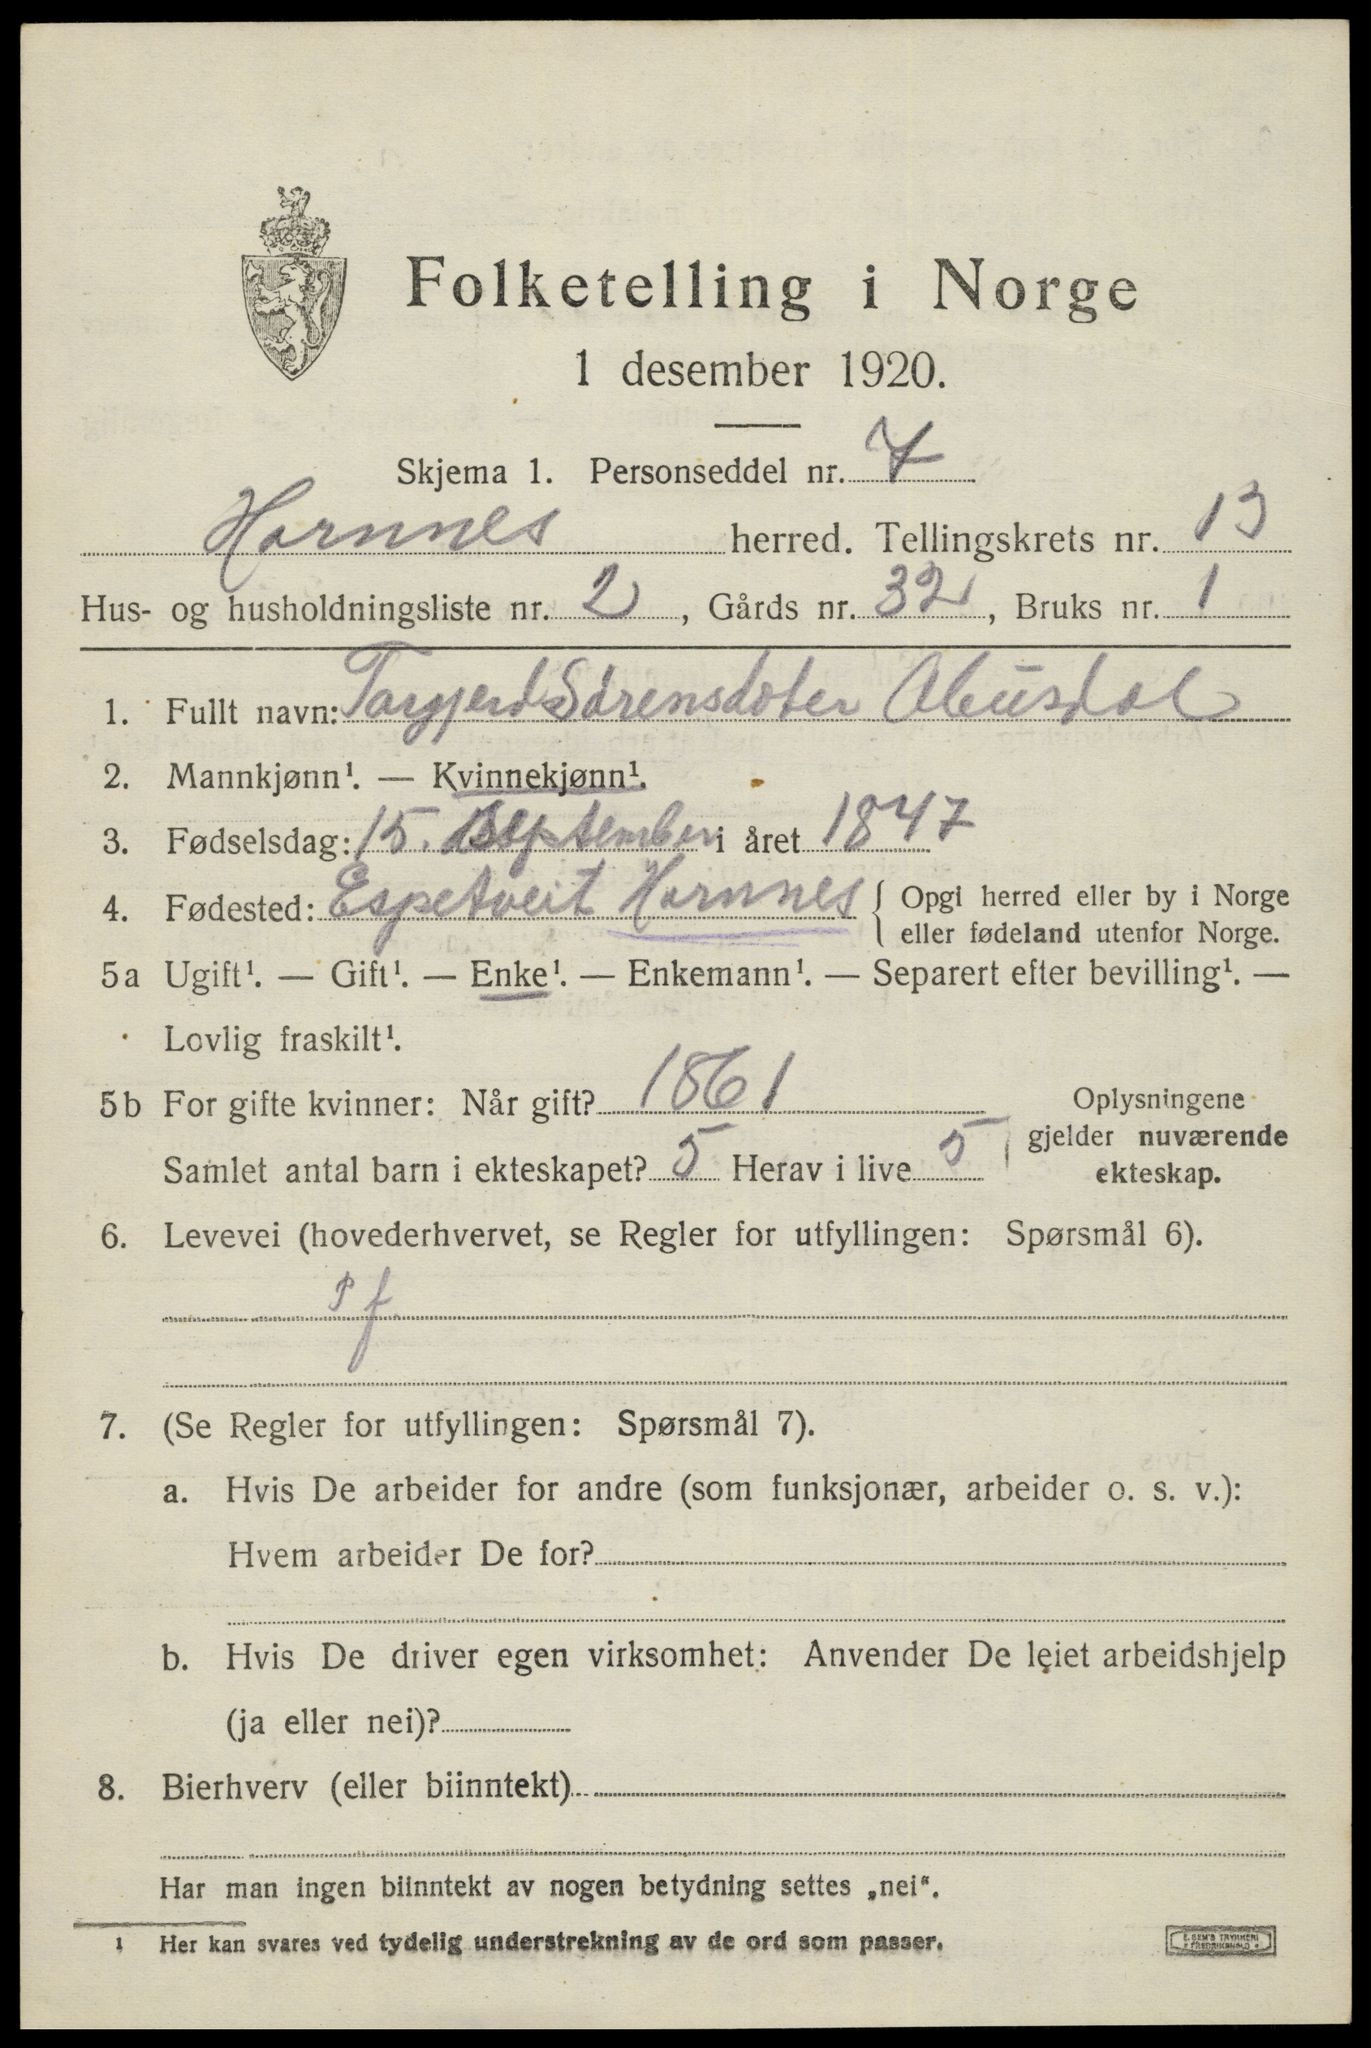 Folketelling i Norge
1 desember 1920.
Skjema 1. Personseddel nr. 7
Hornnes herred. Tellingskrets nr. 13
Hus- og husholdningsliste nr. 2, Gårds nr. 32, Bruks nr. 1
1. Fullt navn: Torgjerd Sørensdoter Abusdal
2. Mannkjønn¹. — Kvinnekjønn¹.
3. Fødselsdag: 15. September i året 1847
4. Fødested: Espetveit Hornnes { Opgi herred eller by i Norge
eller fødeland utenfor Norge.
5a Ugift¹. — Gift¹. — Enke¹. — Enkemann¹. — Separert efter bevilling¹. —
Lovlig fraskilt¹.
5b For gifte kvinner: Når gift? 1861
Samlet antal barn i ekteskapet? 5 Herav i live 5
Oplysningene
gjelder nuværende
ekteskap.
6. Levevei (hovederhvervet, se Regler for utfyllingen: Spørsmål 6).
f
7. (Se Regler for utfyllingen: Spørsmål 7).
a. Hvis De arbeider for andre (som funksjonær, arbeider o. s. v.):
Hvem arbeider De for?
b. Hvis De driver egen virksomhet: Anvender De leiet arbeidshjelp
(ja eller nei)?
8. Bierhverv (eller biinntekt)
Har man ingen biinntekt av nogen betydning settes „nei“.
¹ Her kan svares ved tydelig understrekning av de ord som passer.
E. SEM'S TRYKKERI
FREDRIKSHALD